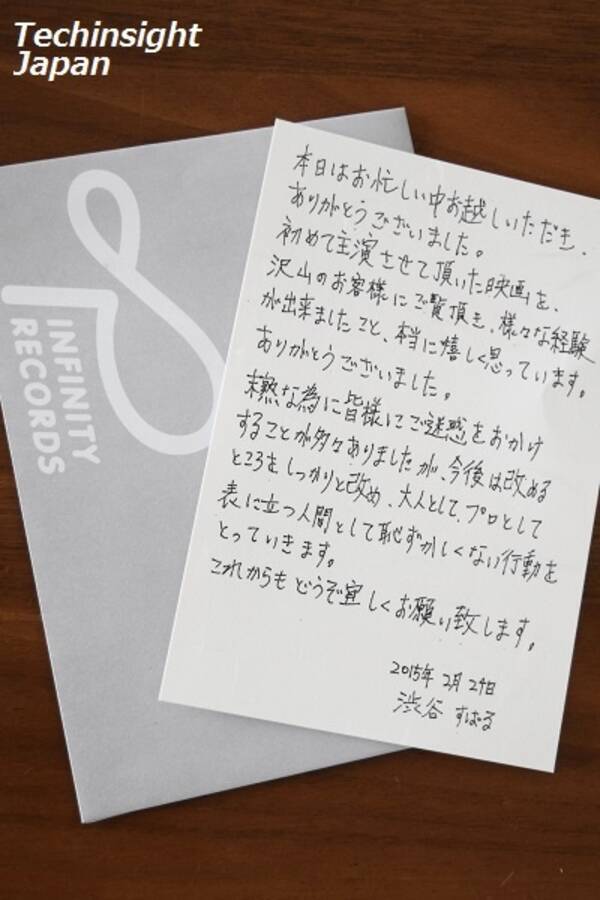 Techinsight
Japan
INFINITY
RECORDS
本日はお忙しい中お越しいただき、
ありがとうございました。
初めて主演させて頂いた映画を、
沢山のお客様にご覧頂き、様々な経験
が出来ましたこと、本当に嬉しく思っています。
ありがとうございました。
未熟な為に皆様にご迷惑をおかけ
することが多々ありましたが、今後は改める
ところをしっかりと改め、大人として、プロとして
表に立つ人間として恥ずかしくない行動を
とっていきます。
これからもどうぞ宜しくお願い致します。
2015年 2月 24日
渋谷 すばる